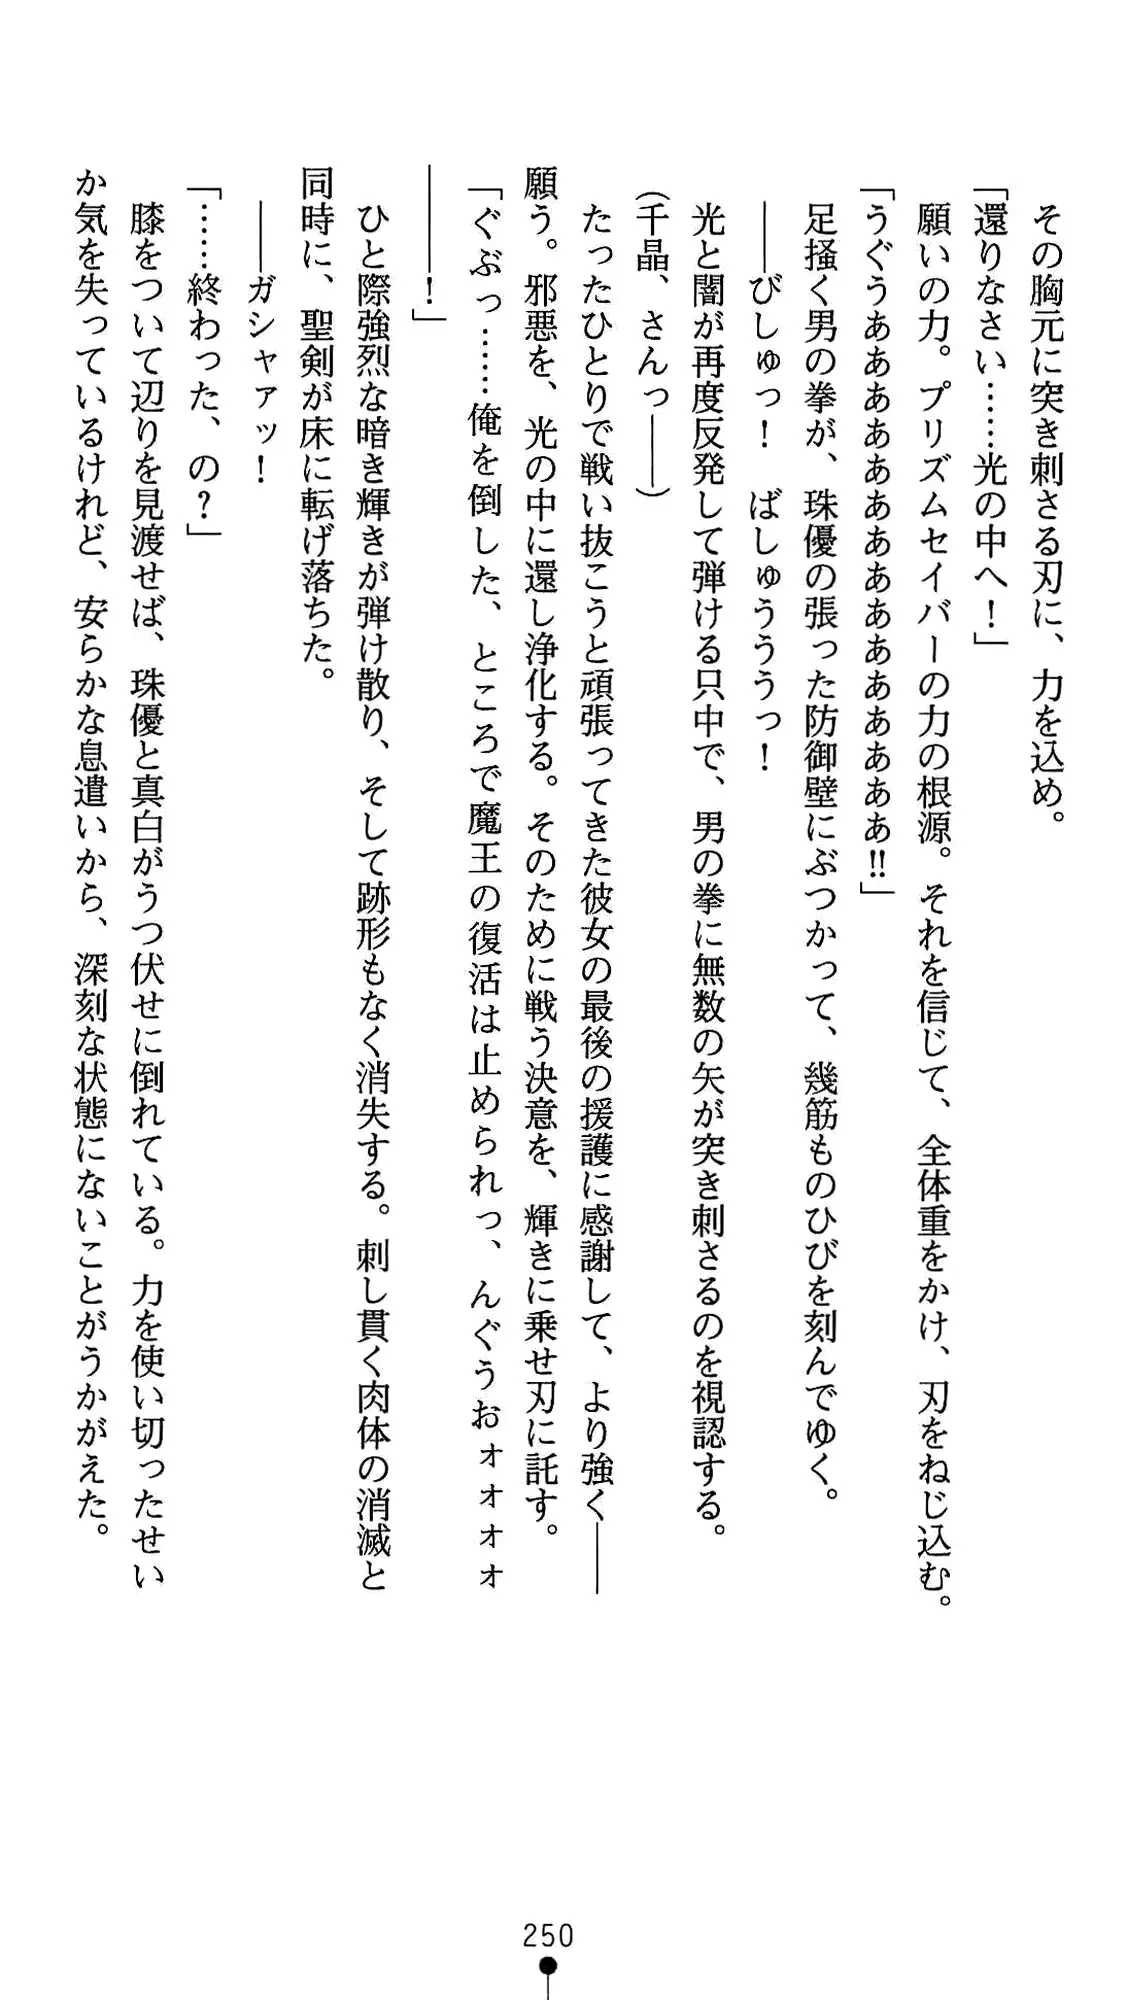 その胸元に突き刺さる刃に、力を込め。
「還りなさい……光の中へ！」
願いの力。プリズムセイバーの力の根源。それを信じて、全体重をかけ、刃をねじ込む。
「うぐうああああああああああああああ!!」
足掻く男の拳が、珠優の張った防御壁にぶつかって、幾筋ものひびを刻んでゆく。
――びしゅっ！　ばしゅうううっ！
光と闇が再度反発して弾ける只中で、男の拳に無数の矢が突き刺さるのを視認する。
（千晶、さんっ――）
たったひとりで戦い抜こうと頑張ってきた彼女の最後の援護に感謝して、より強く――
願う。邪悪を、光の中に還し浄化する。そのために戦う決意を、輝きに乗せ刃に託す。
「ぐぶっ……俺を倒した、ところで魔王の復活は止められっ、んぐうぉォォォォ
――――！」
ひと際強烈な暗き輝きが弾け散り、そして跡形もなく消失する。刺し貫く肉体の消滅と
同時に、聖剣が床に転げ落ちた。
――ガシャァッ！
「……終わった、の？」
膝をついて辺りを見渡せば、珠優と真白がうつ伏せに倒れている。力を使い切ったせい
か気を失っているけれど、安らかな息遣いから、深刻な状態にないことがうかがえた。
250